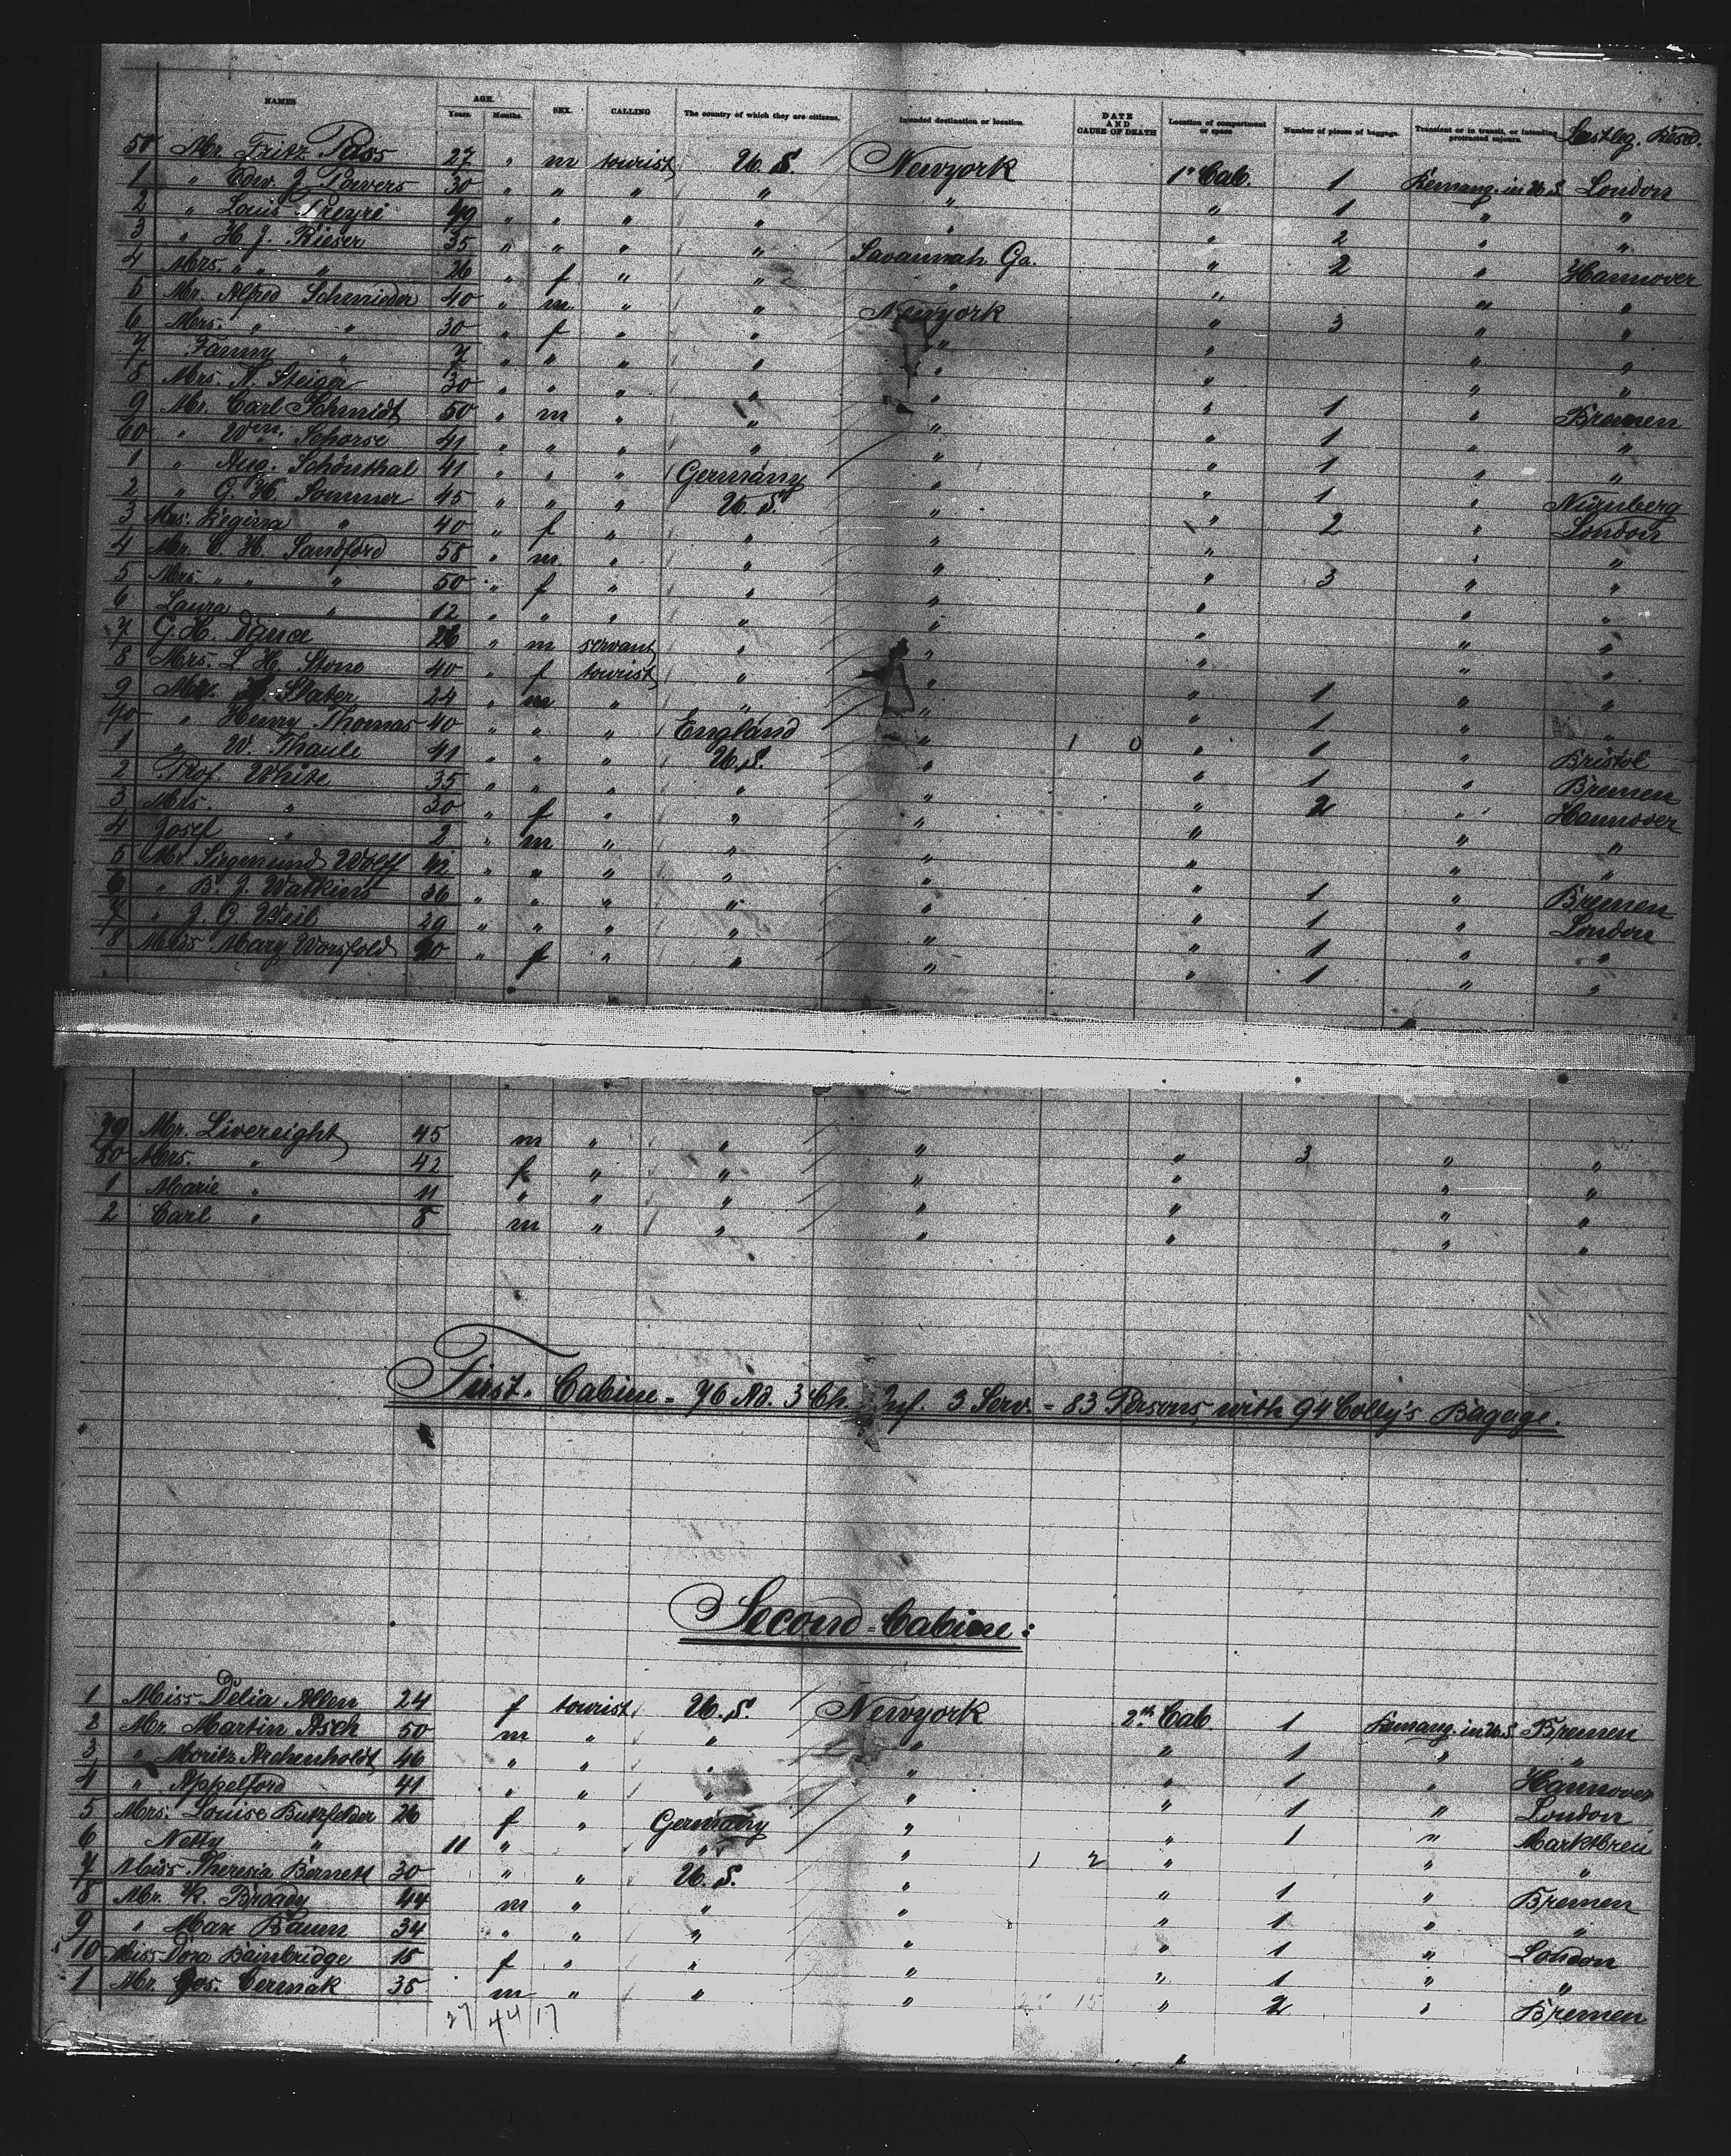 NAMES AGE. Years. Months. SEX. CALLING The country of which they are citizens. Intended destination or location. DATE AND CAUSE OF DEATH Location of compartment or space Number of pieces of baggage. Transient or in transit, or intending protracted sojourn.
50 Mr. Fritz Pass 27 " m tourist U.S. Newyork 1st Cab. 1 Remang. in U.S. London
1 " Edw. J. Powers 30 " " " " " " 1 " "
2 " Louis 49 " " " " " " 2 " "
3 " H. J. Rieser 35 " " " " Savannah Ga. " 2 " Hannover
4 Mrs. " " " 26 " f " " " " " "
5 Mr. Alfred Schmieder 40 " m " " Newyork " 3 " "
6 Mrs. " " 30 " f " " " " " "
7 Fanny " 7 " " " " " " " "
8 Mrs. A. Steiger 30 " " " " " " 1 " Bremen
9 Mr. Carl Schmidt 50 " m " " " " 1 " "
60 " Wm. Schorse 41 " " " " " " 1 " "
1 " Aug. Schönthal 41 " " " Germany " " 1 " Nürnberg
2 " G. H. Sommer 45 " " " U.S. " " 2 " London
3 Mrs. Regina " 40 " f " " " " " "
4 Mr. C. H. Sandford 58 " m " " " " 3 " "
5 Mrs. " " " 50 " f " " " " " "
6 Laura " 12 " " " " " " " "
7 G. H. Dance 26 " m servant " " " " "
8 Mrs. L. H. Stone 40 " f tourist " " " 1 " "
9 Mr. Slater 24 " m " " " " 1 " "
70 " Henry Thomas 40 " " " England " 1 0 " 1 " Bristol
1 " W. Thaule 41 " " " U.S. " " 1 " Bremen
2 Prof. White 35 " " " " " " 2 " Hannover
3 Mrs. " 30 " f " " " " " "
4 Josef " 2 " m " " " " " "
5 Mr. Siegmund Wolff 42 " " " " " " 1 " Bremen
6 " B. J. Watkins 36 " " " " " " 1 " London
7 " J. G. Weil 29 " " " " " " 1 " "
8 Miss Mary Worsfold " f " " " " 1 " "
79 Mr. Livereight 45 m " " " " 3 " "
80 Mrs. " 42 f " " " " " "
1 Marie " 11 " " " " " " "
2 Carl " 8 m " " " " " "
First. Cabine = 76 Ad. 3 Ch. Inf. 3 Serv. = 83 Persons, with 94 Colly's Bagage.
Second=Cabine:
1 Miss Delia Allen 24 f tourist U.S. Newyork 2th Cab 1 Remang. in U.S. Bremen
2 Mr. Martin Asch 50 m " " " " 1 " "
3 " Moritz Archenholdt 46 " " " " " 1 " Hannover
4 " Appelford 41 " " " " " 1 " London
5 Mrs. Louise Butzfelder 26 f " Germany " " 1 " Marktbreit
6 Netty " 11 " " " 1 2 " " "
7 Miss Theresia Bernett 30 " " U.S. " " 1 " Bremen
8 Mr. K. Broady 44 m " " " " 1 " "
9 " Max Baum 34 " " " " " 1 " London
10 Miss Dora Bainbridge 18 f " " " " 1 " "
1 Mr. Jos. Cermak 35 m " " " " 2 " Bremen
27 44 17